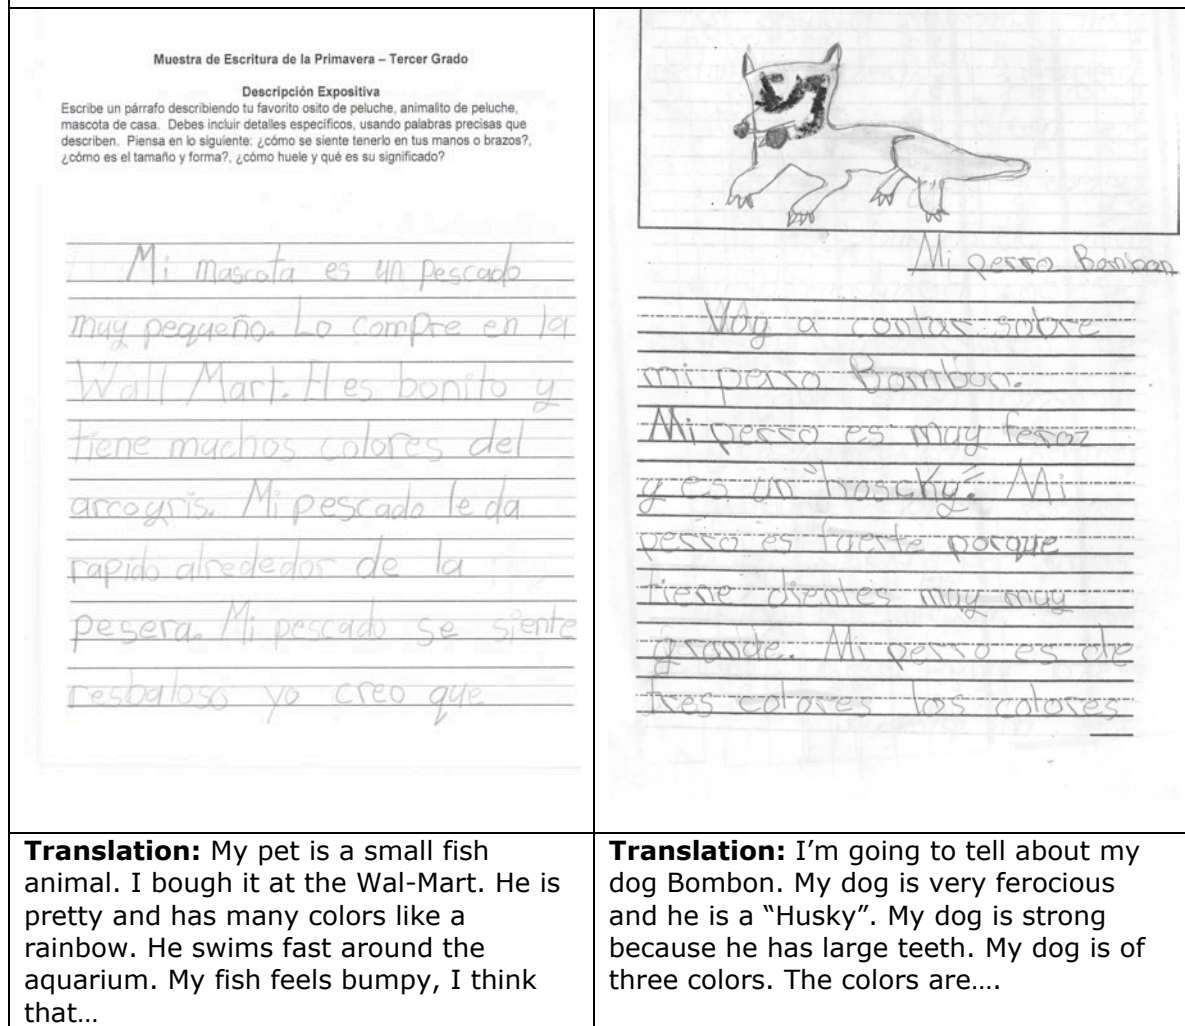 Muestra de Escritura de la Primavera – Tercer Grado
Descripción Expositiva
Escribe un párrafo describiendo tu favorito osito de peluche, animalito de peluche,
mascota de casa. Debes incluir detalles específicos, usando palabras precisas que
describen. Piensa en lo siguiente: ¿cómo se siente tenerlo en tus manos o brazos?,
¿cómo es el tamaño y forma?, ¿cómo huele y qué es su significado?
Mi mascota es un pescado
muy pequeño. Lo compre en la
Wall Mart. El es bonito y
tiene muchos colores del
arcogris. Mi pescado le da
rapido alrededor de la
pesera. Mi pescado se siente
resbaloso yo creo que
Translation: My pet is a small fish
animal. I bough it at the Wal-Mart. He is
pretty and has many colors like a
rainbow. He swims fast around the
aquarium. My fish feels bumpy, I think
that…
Mi perro Bombon
Voy a contar sobre
mi perro Bombon.
Mi perro es muy feroz
y es un "hoscky". Mi
perro es fuerte porque
tiene dientes muy muy
grande. Mi perro es de
tres colores los colores
Translation: I’m going to tell about my
dog Bombon. My dog is very ferocious
and he is a “Husky”. My dog is strong
because he has large teeth. My dog is of
three colors. The colors are….